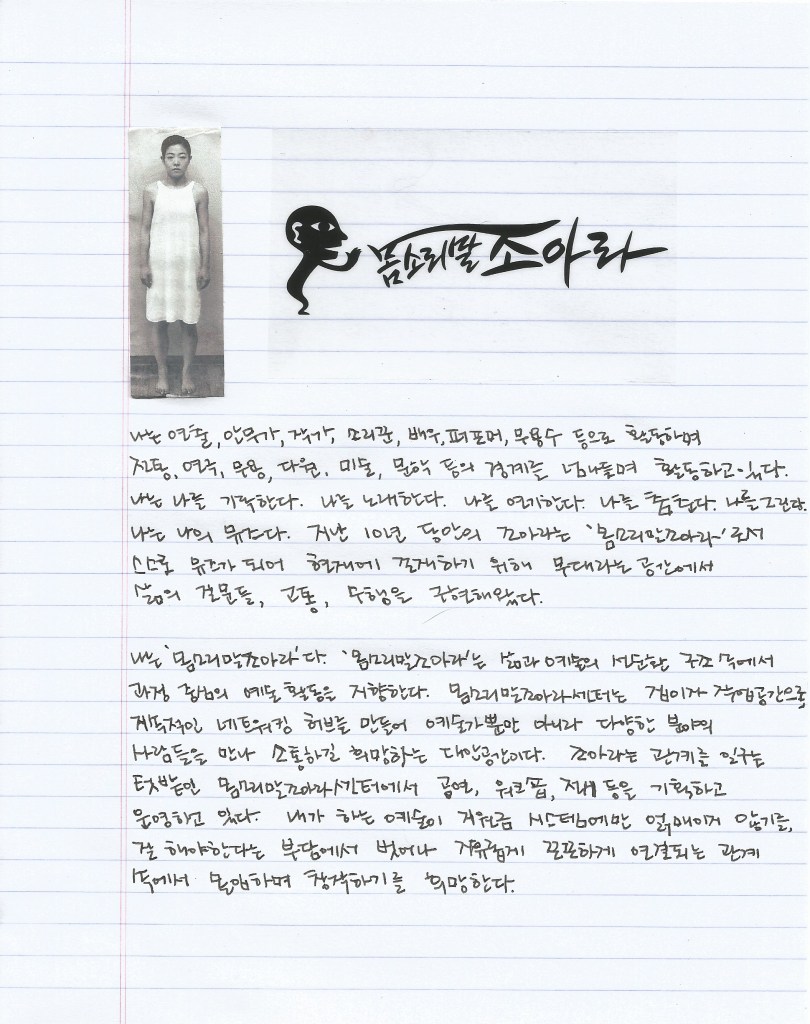 몸소리말 조아라
나는 연출, 안무가, 작가, 소리꾼, 배우, 퍼포머, 무용수 등으로 활동하며
전통, 연극, 무용, 다원, 미술, 문학 등의 경계를 넘나들며 활동하고 있다.
나는 나를 기록한다. 나를 노래한다. 나를 연기한다. 나를 춤춘다. 나를 그린다.
나는 나의 뮤즈다. 지난 10년 동안의 조아라는 '몸소리말조아라'로서
스스로 뮤즈가 되어 현재에 존재하기 위해 무대라는 공간에서
삶의 질문들, 고통, 수행을 구현해왔다.
나는 '몸소리말조아라'다. '몸소리말조아라'는 삶과 예술의 선순환 구조 속에서
과정 중심의 예술 활동을 지향한다. 몸소리말조아라센터는 집이자 작업공간으로,
지속적인 네트워킹 허브를 만들어 예술가뿐만 아니라 다양한 분야의
사람들을 만나 소통하길 희망하는 대안공간이다. 조아라는 관계를 일구는
텃밭인 몸소리말조아라센터에서 공연, 워크숍, 전시 등을 기획하고
운영하고 있다. 내가 하는 예술이 지원금 시스템에만 얽매이지 않기를,
잘 해야한다는 부담에서 벗어나 자유롭게 꼼꼼하게 연결되는 관계
속에서 몰입하며 창작하기를 희망한다.